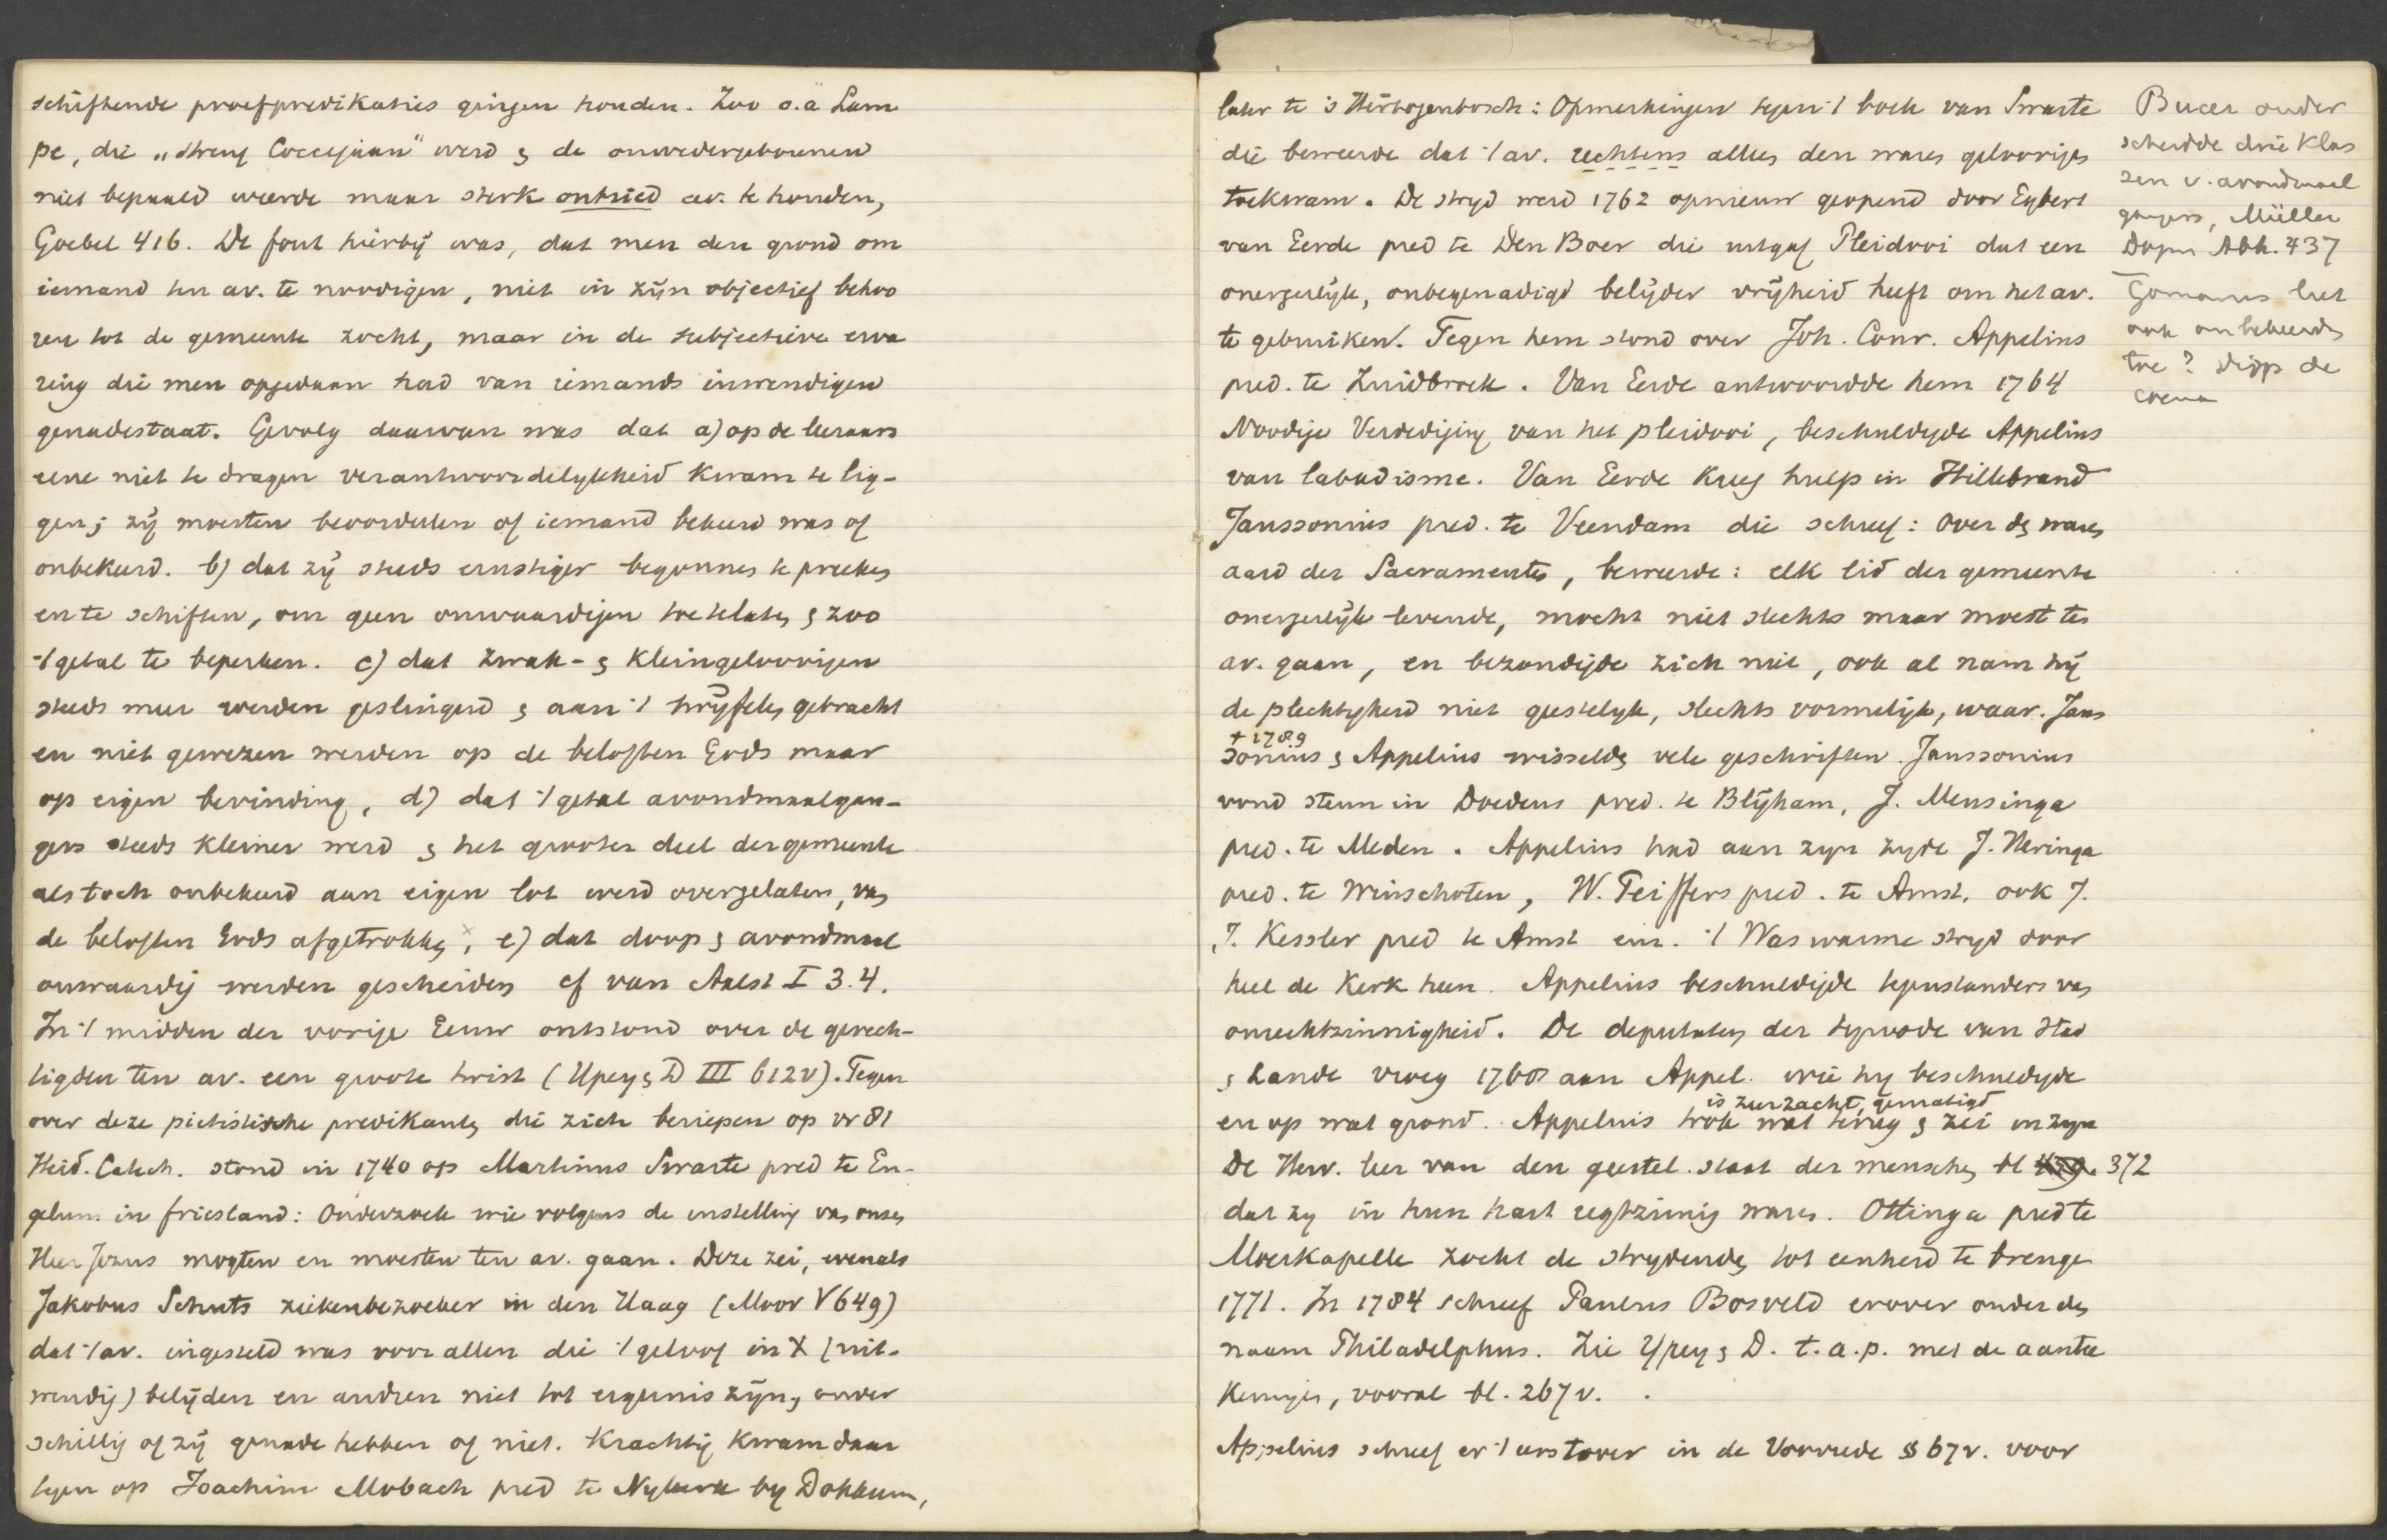 schiftende proefpredikaties gingen houden. Zoo o.a Lam
pe, die „streng Coccejaan" werd & de onwedergeborenen
niet bepaald weerde maar sterk ontried av. te houden,
Goebel 416. De fout hierbij was, dat men den grond om
iemand ten av. te noodigen, niet in zijn objectief behoo
ren tot de gemeente zocht, maar in de subjectieve erva
ring die men opgedaan had van iemands inwendigen
genadestaat. Gevolg daarvan was dat a) op de leeraars
eene niet te dragen verantwoordelykheid kwam te lig-
gen; zij moesten beoordeelen of iemand bekeerd was of
onbekeerd. b) dat zij steeds ernstiger begonnen te preeken
en te schiften, om geen onwaardigen toe te laten & zoo
't getal te beperken. c) dat zwak- & kleingeloovigen
steeds meer werden geslingerd & aan 't twijfelen gebracht
en niet gewezen werden op de beloften Gods maar
op eigen bevinding, d) dat 't getal avondmaalgan-
gers steeds kleiner werd & het grooter deel der gemeente
als toch onbekeerd aan eigen lot werd overgelaten, van
de beloften Gods afgetrokken, e) dat doop & avondmaal
onwaardig werden gescheiden cf van Aalst I 3.4.
In 't midden der vorige Eeuw ontstond over de gerech-
tigden ten av. een groote twist (Upey & D III 612v). Tegen
over deze pietistische predikanten die zich beriepen op vr 81
Heid. Catech. stond in 1740 op Martinus Swarte pred te En-
gelum in friesland: Onderzoek wie volgens de instelling van onzen
Heer Jezus mogten en moesten ten av. gaan. Deze zei, evenals
Jakobus Schuts ziekenbezoeker in den Haag (Moor V 649)
dat 't av. ingesteld was voor allen die 't geloof in X (uit-
wendig) belijden en andren niet tot ergernis zijn, onver
schillig of zij genade hebben of niet. Krachtig kwam daar
tegen op Joachim Mobach pred te Nykerk by Dokkum,
later te 's Hertogenbosch: Opmerkingen tegen 't boek van Swarte
die beweerde dat 't av. rechtens alleen den waren geloovigen
toekwam. De stryd werd 1762 opnieuw geopend door Eybert
van Eerde pred te Den Boer die uitgaf Pleidooi dat een
onergerlijk, onbegenadigd belijder vrijheid heeft om het av.
te gebruiken. Tegen hem stond over Joh. Conr. Appelius
pred. te Zuidbroek. Van Eerde antwoordde hem 1764
Noodige Verdediging van het pleidooi, beschuldigde Appelius
van labadisme. Van Eerde kreeg hulp in Hillebrand
Janssonius pred. te Veendam die schreef: Over den waren
aard der Sacramenten, beweerde: elk lid der gemeente
onergerlijk levende, mocht niet slechts maar moest ten
av. gaan, en bezondigde zich niet, ook al nam hij
de plechtigheid niet geestelyk, slechts vormelijk, waar. Jans
† 1789
sonius & Appelius wisselden vele geschriften. Janssonius
vond steun in Doedens pred. te Blijham, J. Mensinga
pred. te Meden. Appelius had aan zyn zyde J. Heringa
pred. te Winschoten, W. Peiffers pred. te Amst. ook J.
J. Kessler pred te Amst enz. 't Was warme stryd door
heel de Kerk heen. Appelius beschuldigde tegenstanders van
onrechtzinnigheid. De deputaten der synode van Stad
& Lande vroeg 1768 aan Appel. wie hy beschuldigde
is zeer zacht, gematigd
en op wat grond. Appelius trok wat terug & zei in zyn
De Herv. leer van den geestel. staat der menschen bl 372
dat zy in hun hart regtzinnig waren. Ottinga pred te
Moerkapelle zocht de strydenden tot eenheid te brengen
1771. In 1784 schreef Paulus Bosveld erover onder den
naam Philadelphus. Zie Ypey & D. t.a.p. met de aantee
keningen, vooral bl. 267v.
Appelius schreef er 't eerst over in de Voorrede § 67v. voor
Bucer onder
scheidde drie klas
sen v. avondmaal
gangers, Müller
Dogm Abh. 437
Gomarus liet
ook onbekeerden
toe? disp de
coena